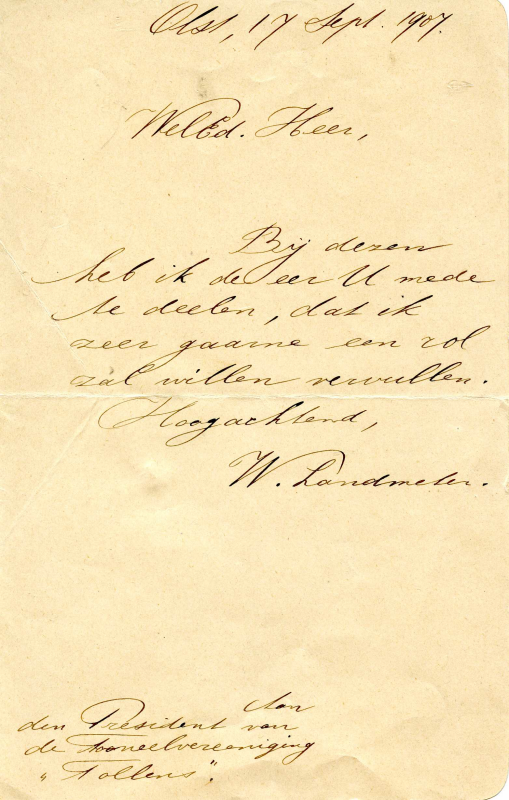 Olst, 17 Sept. 1907.
WelEd. Heer,
Bij dezen
heb ik de eer U mede
te deelen, dat ik
zeer gaarne een rol
zal willen vervullen.
Hoogachtend,
W. Landmeter.
Aan
den President van
de Tooneelvereeniging
„Tollens".